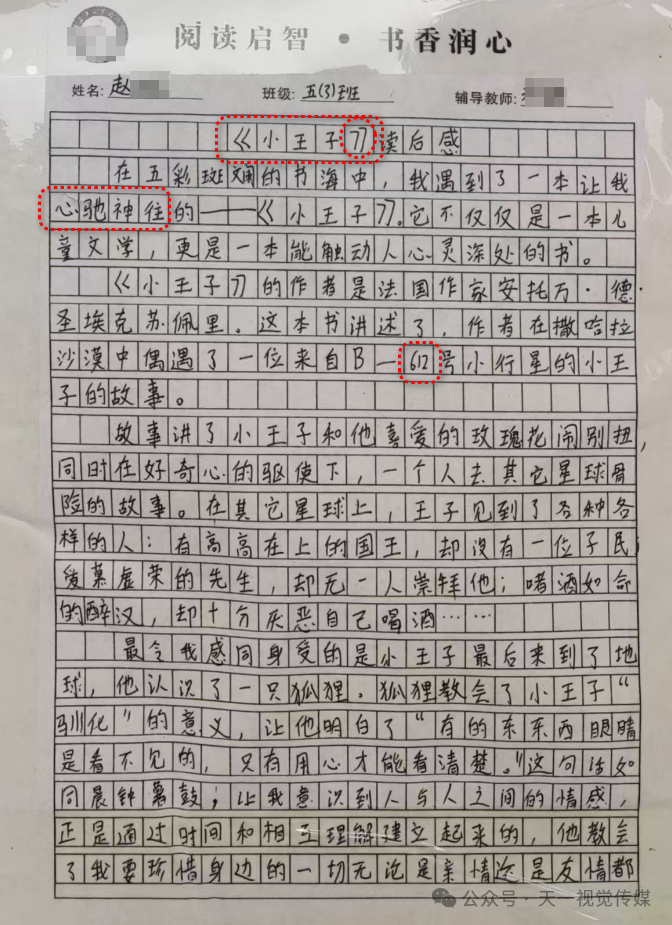 阅读启智 · 书香润心
姓名: 赵
班级: 五(3)班
辅导教师:
《小王子》读后感
在五彩斑斓的书海中，我遇到了一本让我
心驰神往的——《小王子》。它不仅仅是一本儿
童文学，更是一本能触动人心灵深处的书。
《小王子》的作者是法国作家安托万·德·
圣埃克苏佩里。这本书讲述了，作者在撒哈拉
沙漠中偶遇了一位来自B—612号小行星的小王
子的故事。
故事讲了小王子和他喜爱的玫瑰花闹别扭，
同时在好奇心的驱使下，一个人去其它星球冒
险的故事。在其它星球上，王子见到了各种各
样的人：有高高在上的国王，却没有一位子民；
爱慕虚荣的先生，却无一人崇拜他；嗜酒如命
的醉汉，却十分厌恶自己喝酒……
最令我感同身受的是小王子最后来到了地
球，他认识了一只狐狸。狐狸教会了小王子“
驯化”的意义，让他明白了“有的东东西眼睛
是看不见的，只有用心才能看清楚。”这句话如
同晨钟暮鼓；让我意识到人与人之间的情感，
正是通过时间和相互理解建立起来的，他教会
了我要珍惜身边的一切无论是亲情还是友情都
公众号·天一视觉传媒